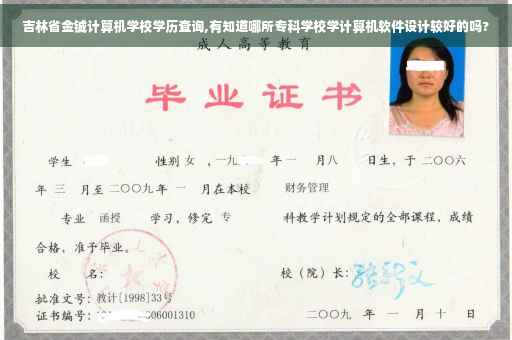 吉林省金铖计算机学校学历查询,有知道哪所专科学校学计算机软件设计较好的吗?
成人高等教育
毕业证书
学生 性别 女 ,一九 年 一 月八 日生，于 二〇〇六
年 三 月至 二〇〇九 年 一 月在本校 财务管理
专业 函授 学习，修完 专 科教学计划规定的全部课程，成绩
合格，准予毕业。
校 名： 校（院）长：
批准文号：教计[1998]33号
证书编号： 06001310 二〇〇九 年 一 月 十 日